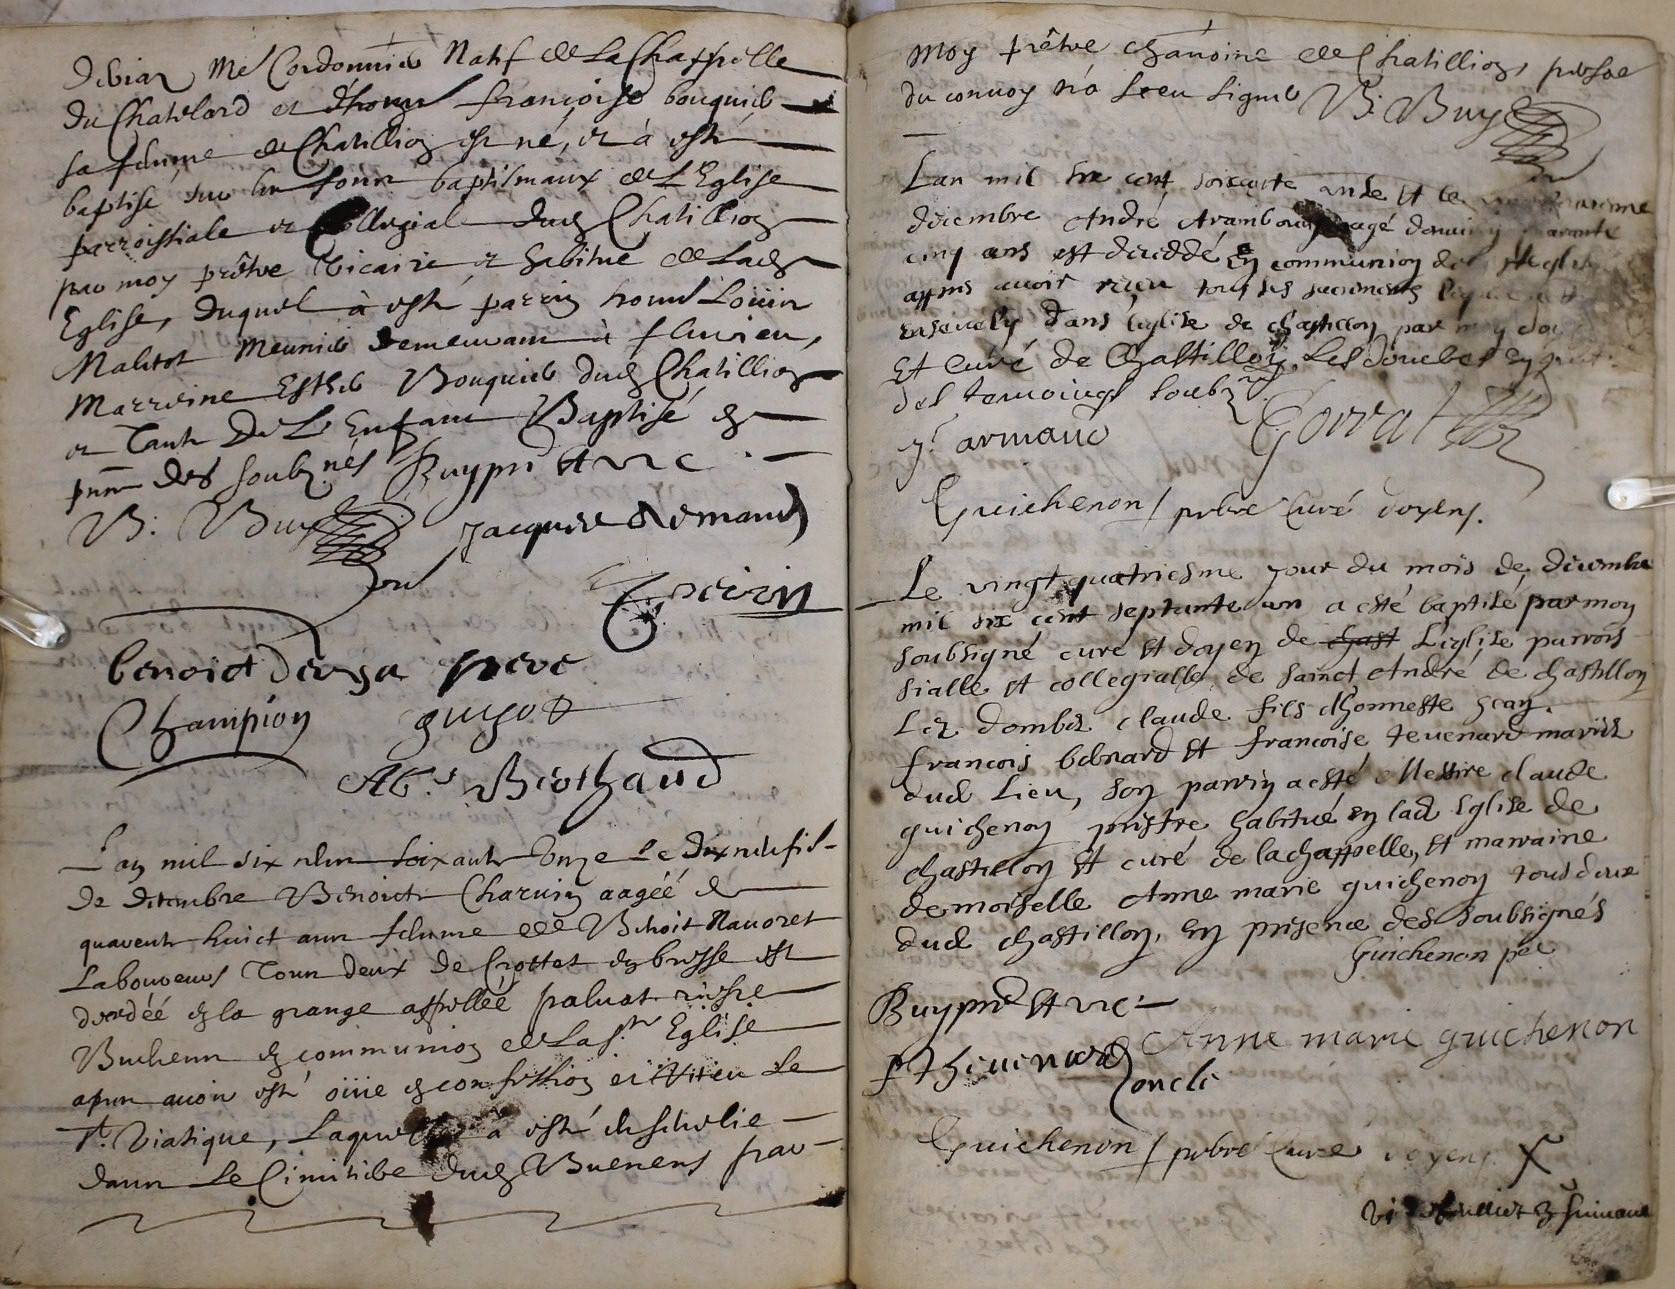 Me Cordonnier Natif de La Chappelle
Du Chatelard et d'honn françoise bouquier
sa femme de Chatillion est né, et à esté
baptisé sur les fonns baptismaux de L'Eglise
parroissiale et Collegial dud Chatillion
par moy prêtre vicaire et habitué de Lad
Eglise, duquel à esté parrin honn Loüis
Malitot Meunier demeurant à fluvieu,
Marreine Esther Bouquier dud Chatillion
et Tante De L'Enfant Baptisé en
pnce des soubznés Buy pr et vic
B. Buy Jacques
benoict
Champion guyot
Berthaud
L'an mil six cent soixante Onze Le Dix neufie
De decembre Benoicte Charvin aagéé de
quarente huict ans femme de Benoit Navoret
Laboureurs Tous deux de Crottet en bresse est
decedéé en la grange appelléé paluat riere
Buenens en communion de La Ste Eglise
apres avoir esté oüie en confession et reçeu Le
St. Viatique, Laquelle à esté ensevelie
dans Le Cimitiere dud Buenens par
moy prêtre chanoine de Chatillion, presse
du convoy n'a sceu signer B. Buy
L'an mil six cent soixante unse et le
decembre André agé d'environ quarante
cinq ans est decedé en communion de l'eglise
appres avoir receu tous ses sacrements
ensevely dans l'eglise de chastillon par moy doyen
Et curé de Chastillon,
des temoings soubz
J. armand Gorrat
Guichenon / prbre curé doyen.
Le vingt quatriesme jour du mois de decembre
mil six cent septante un a esté baptisé par moy
soubsigné curé et doyen de chast L'eglise parrois
sialle et collegialle de sainct André de chastillon
Lez dombes claude fils d'honneste
françois bernard et francoise tevenard mariés
dud Lieu, son parrin a esté Messire claude
guichenon prestre habitué en lad Eglise de
chastillon et curé de la chappelle, et marraine
demoiselle Anne marie guichenon tous deux
dud chastillon, En presence des soubsignés
Guichenon
Buy pr et vic
Anne marie guichenon
p thevenard oncle
Guichenon / prbre curé doyen